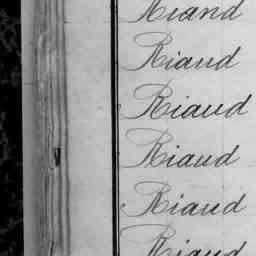 Riaud
Riaud
Riaud
Riaud
Riaud
Riaud